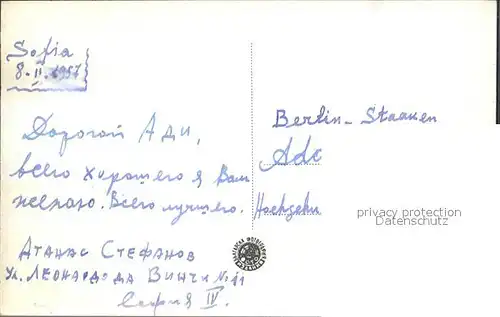 Sofia
8.II.1957
Дорогой Ади,
всего хорошего я Вам
желаю. Всего лучшего.
Атанас Стефанов
Ул. Леонардо да Винчи № 11
София IV.
Berlin-Staaken
Ade
privacy protection
Datenschutz